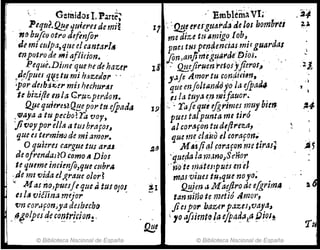 Gemidos I. Parte,
Pequè. Que quieres de mi? 17
no busco otro defensor
de mi culpa, que el cantarla
en potro de mi aflicion.
Pequè. Dime que he de hazer 18
despues que tu mi hazedor
por desbazer mis hechuras
te hiziste en la Cruz perdon.
Que quieres? Que por tu espada 19
vaya a tu pecho? Ya voy,
si voy por ella a tus braços,
que es termino de mi amor.
O quieres cargue tus aras 20
de ofrendas? O como a Dios
te queme inciensos, que cubra
de mi vida el graue olor?
Mas no, pues se que à tus ojos 21
es la victima mejor
vn coraçon, ya desbecho
a golpes de contricion.
Que
Emblema VI. 24
Que eres guarda de los hombres 22
me dize tu amigo Iob,
pues tus pendencias mis guardas
son, ansi me guarde Dios.
Que siruen retos y fieros, 23
ya se Amor tu condicion,
que enojaltandó yo la espada
es la tuya en mi fauor.
Ya se que esgrimes muy bien 24
pues tal punta me tirò
al coraçon tu destreza,
que me clauò el coraçon.
Mas si al coraçon me tiras, 25
queda la mano, Señor
no te mates pues en el
mas viues tu, que no yo.
Quien a Maestro de esgrima 26
tan niño te metiò Amor,
si es por hazer pazes, vaya,
yo assiento la espada, a Dios.
Tu
© Biblioteca Nacional de España
© Biblioteca Nacional de España